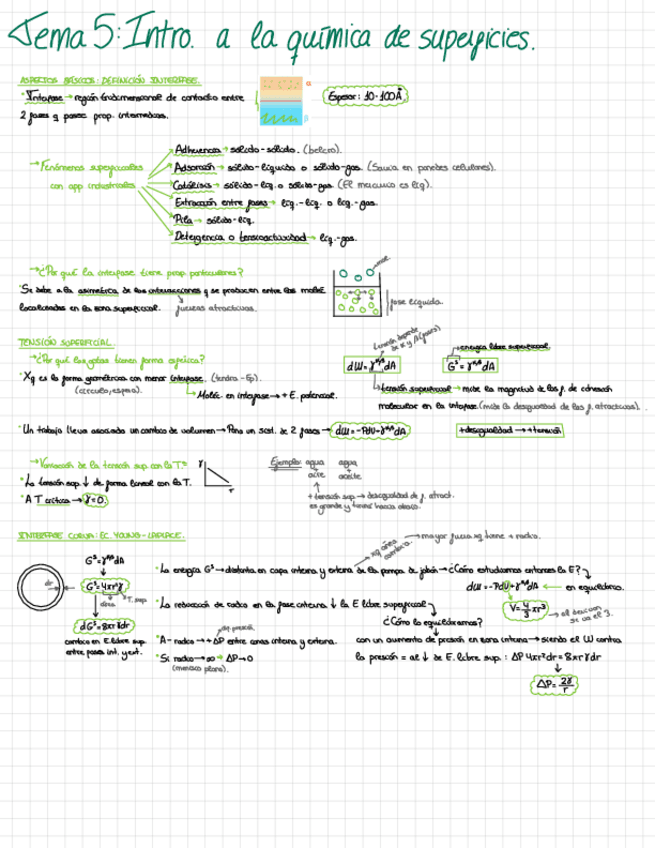 Tema 5: Intro. a la química de superficies.
ASPECTOS BÁSICOS: DEFINICIÓN INTERFASE.
Interfase → región tridimensional de contacto entre
2 fases y posee prop. intermedias.
α
β
Espesor: 10-100Å
→ Fenómenos superficiales
con app industriales
Adherencia → sólido-sólido. (belcro).
Adsorción → sólido-líquido o sólido-gas. (Savia en paredes celulares).
Catálisis → sólido-liq. o sólido-gas. (El mercurio es liq).
Extracción entre fases → liq.-liq. o liq.-gas.
Pila → sólido-liq.
Detergencia o tensioactividad → liq.-gas.
→ ¿Por qué la interfase tiene prop. particulares?
Se debe a la asimetría de las interacciones y se producen entre las moléc.
localizadas en la zona superficial.
fuerzas atractivas.
fase líquida.
TENSIÓN SUPERFICIAL
→ ¿Por qué las gotas tienen forma esférica?
Xq es la forma geométrica con menor interfase. (tendrá -Ep).
(círculo, esfera)
Moléc en interfase → + E. potencial.
dW = γ dA
tensión depende de
energía libre superficial.
G^s = γ dA
tensión superficial → mide la magnitud de las f. de cohesión
molecular en la interfase. (mide la desigualdad de las f. atractivas).
Un trabajo lleva asociado un cambio de volumen → Para un sist. de 2 fases → dW = -PdV + γ dA
+ desigualdad → + tensión
→ Variación de la tensión sup. con la Tª
La tensión sup. ↓ de forma lineal con la T.
A T crítica → γ=0.
γ
T
Ejemplo: agua agua
aire aceite
+ tensión sup → desigualdad de f. atract.
es grande y
INTERFASE CURVA: EC. YOUNG-LAPLACE.
dr
G^s = γ dA
G^s = 4πr²γ
área T. sup.
dG^s = 8πrγdr
cambio en E. libre sup.
entre parte int. y ext.
La energía G^s → distinta en capa interna y externa de la pompa de jabón → ¿Cómo estudiamos entonces la E?
xq área cambia.
→ mayor fuera xq tiene + radio.
dW = -PdV + γ dA ← en equilibrio.
V = 4/3 πr³
al derivar se va el 3.
La reducción de radio en la fase interna ↓ la E libre superficial
¿Cómo lo equilibramos?
A - radio → + ΔP entre zonas interna y externa.
dif. presión
Si radio → ∞ → ΔP → 0
(menisco plano).
con un aumento de presión en zona interna → siendo el W contra
la presión = al ↓ de E. libre sup.: ΔP 4πr²dr = 8πrγdr
ΔP = 2γ/r